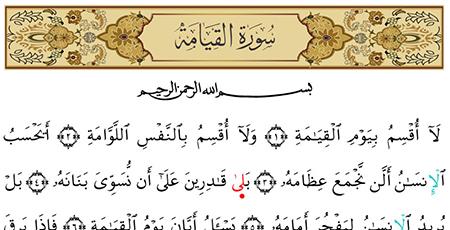 سُورَةُ الْقِيَامَةِ
بِسْمِ اللهِ الرَّحْمٰنِ الرَّحِيمِ
لَآ أُقْسِمُ بِيَوْمِ الْقِيَـٰمَةِ ﴿١﴾ وَلَآ أُقْسِمُ بِالنَّفْسِ اللَّوَّامَةِ ﴿٢﴾ أَيَحْسَبُ
الْإِنسَـٰنُ أَلَّن نَّجْمَعَ عِظَامَهُۥ ﴿٣﴾ بَلَىٰ قَـٰدِرِينَ عَلَىٰٓ أَن نُّسَوِّىَ بَنَانَهُۥ ﴿٤﴾ بَلْ
يُرِيدُ الْإِنسَـٰنُ لِيَفْجُرَ أَمَامَهُۥ ﴿٥﴾ يَسْـَٔلُ أَيَّانَ يَوْمُ الْقِيَـٰمَةِ ﴿٦﴾ فَإِذَا بَرِقَ